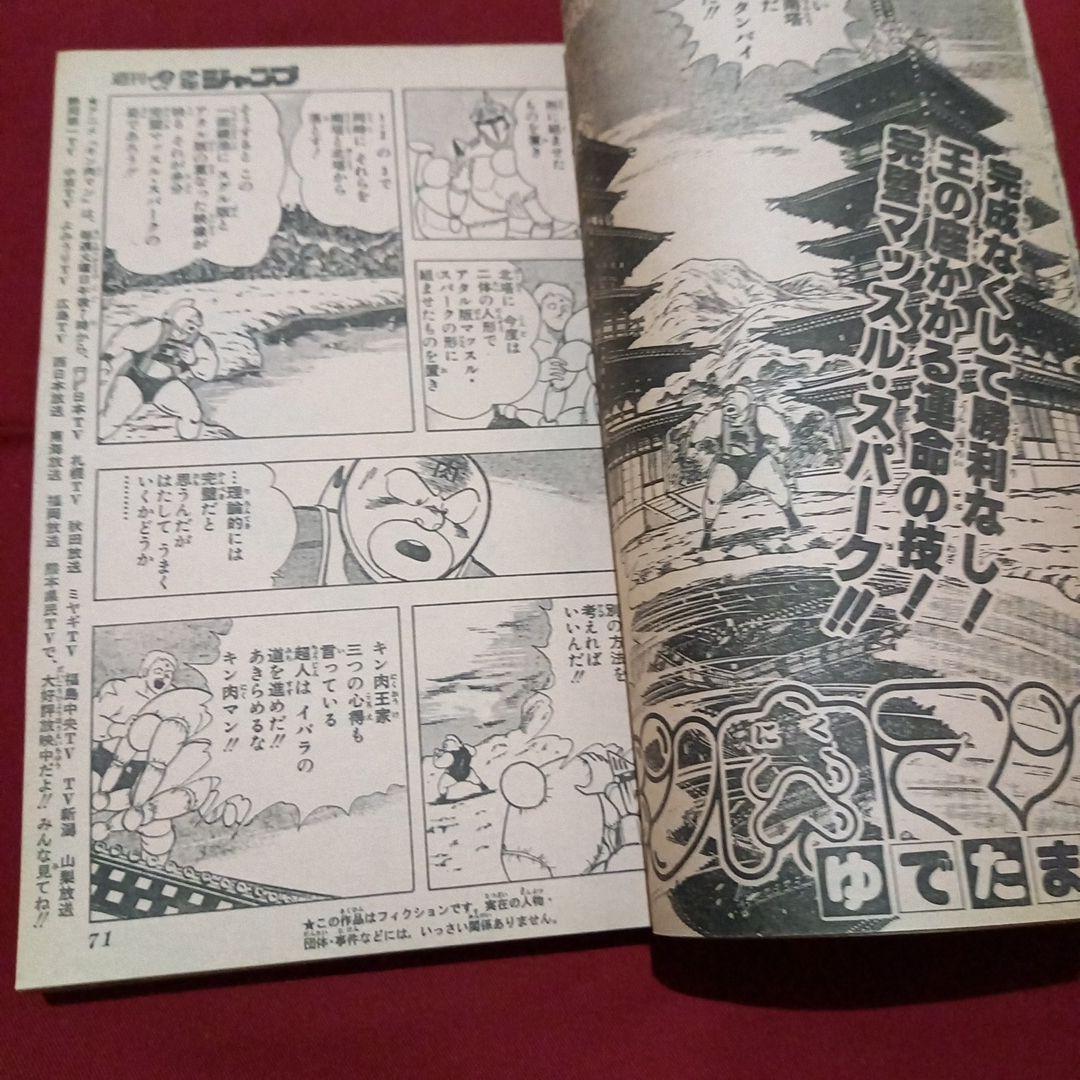 週刊少年ジャンプ
タンバイ
だ!!
完成なくして勝利なし！
王の座かかる運命の技！
完璧マッスル・スパーク!!
キン肉マン
にく
ゆでたま
ものと置き
北塔に 今度は
二体の人形で
アタル版マッスル・
スパークの形に
組ませたものを置き
1・2の3で
同時に それらを
南塔と北塔から
落とす!
そうすると この
アタル版の重なった映像が
映り それが本物の
完璧マッスル・スパークの
姿であろう!!
…理論的には
完璧だと
思うんだが
はたして うまく
いくかどうか
………
別の方法を
考えれば
いいんだ!!
キン肉王家
三つの心得も
言っている
超人は イバラの
道を進めだ!!
あきらめるな
キン肉マン!!
★この作品はフィクションです。実在の人物・
団体・事件などには、いっさい関係ありません。
★アニメ『キン肉マン』は、毎週火曜日午後7時から、日本TV 札幌TV 秋田放送 ミヤギTV 福島中央TV TV新潟 山梨放送
静岡第一TV 中京TV よみうりTV 広島TV 西日本放送 南海放送 福岡放送 熊本県民TVで、大好評放映中だよ!! みんな見てね!!
71